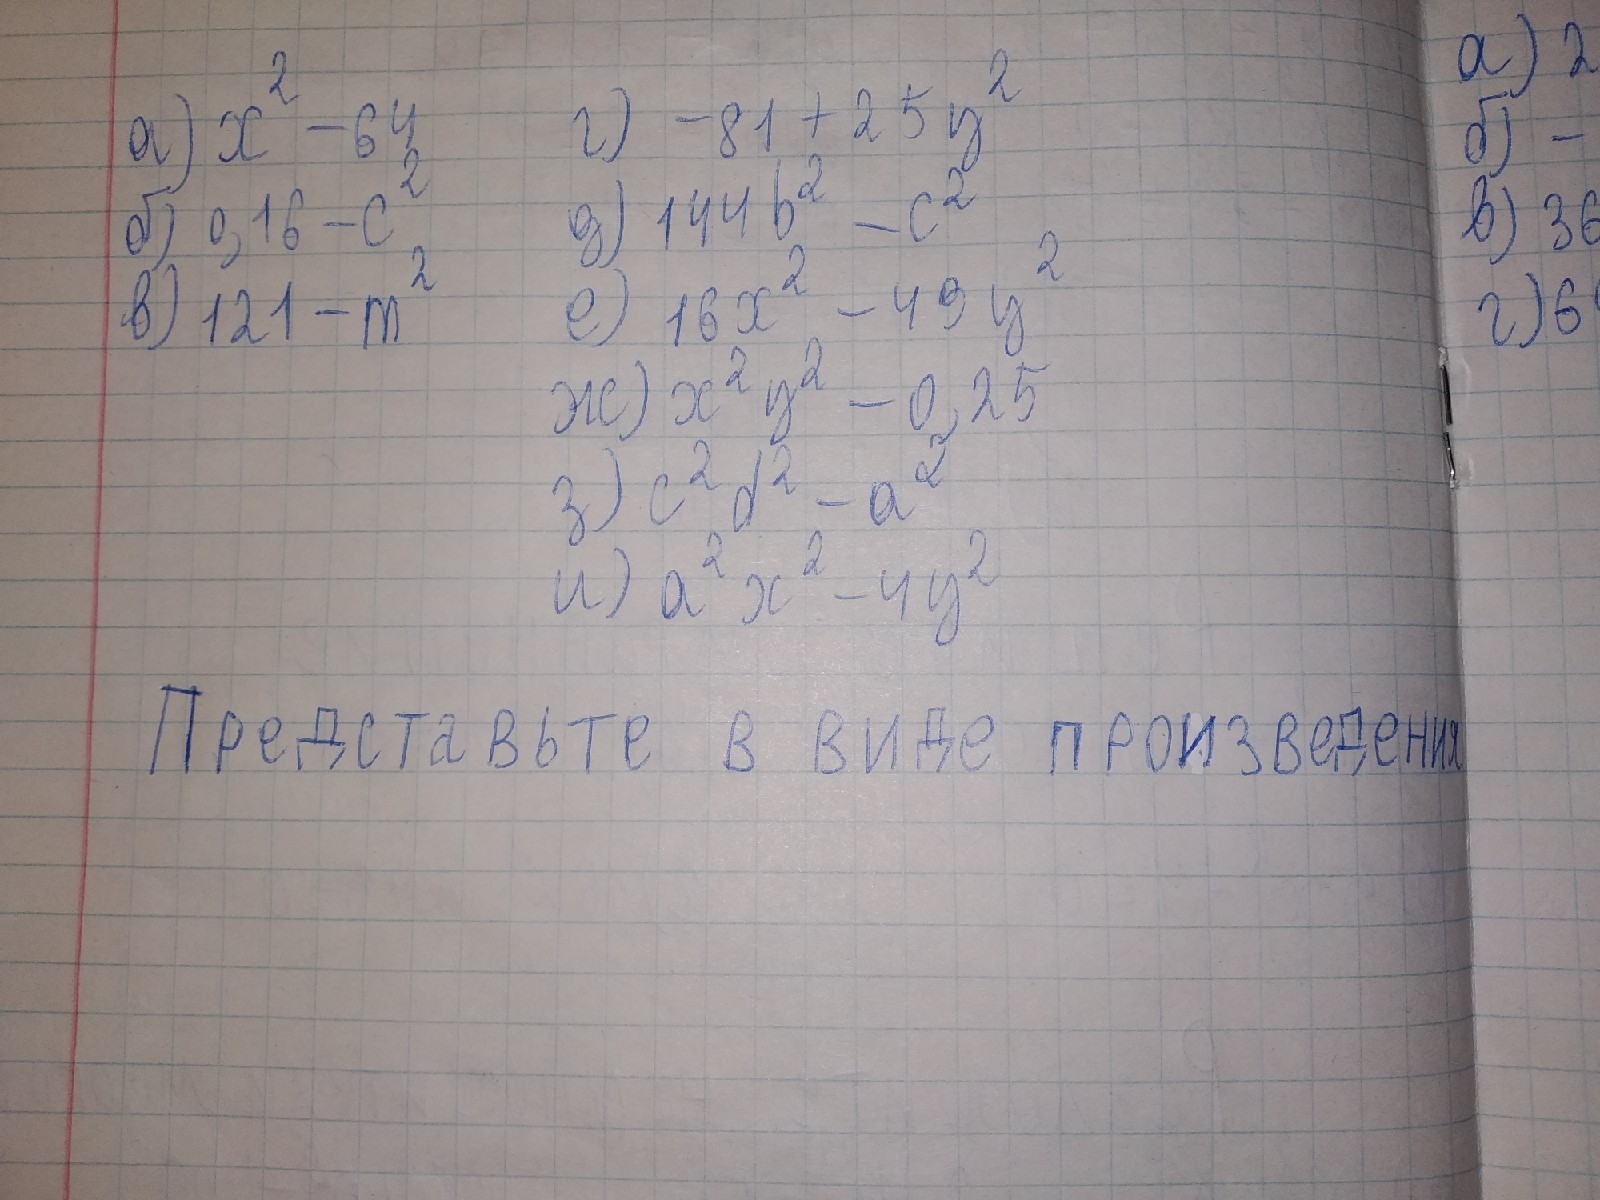 а) x² – 64
б) 0,16 – c²
в) 121 – m²
г) –81 + 25y²
д) 144b² – c²
е) 16x² – 49y²
ж) x²y² – 0,25
з) c²d² – a²
и) a²x² – 4y²
Представьте в виде произведения
а) 2
б) –
в) 36
г) 6